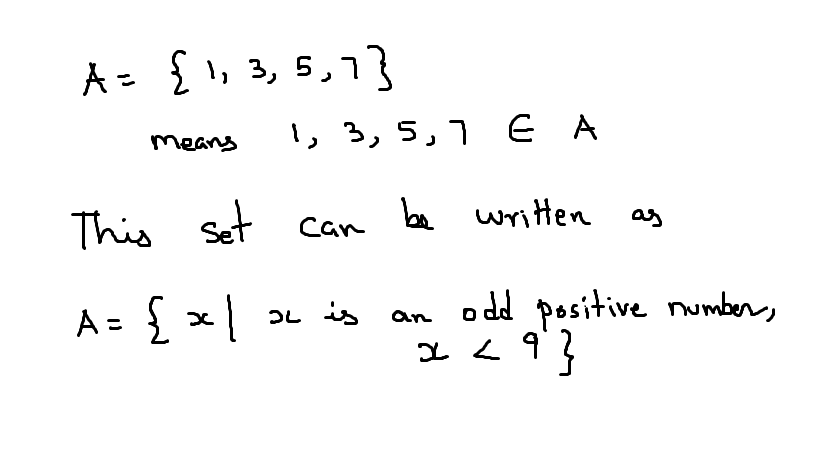 A = { 1, 3, 5, 7 }
means 1, 3, 5, 7 ∈ A
This set can be written as
A = { x | x is an odd positive number,
x < 9 }